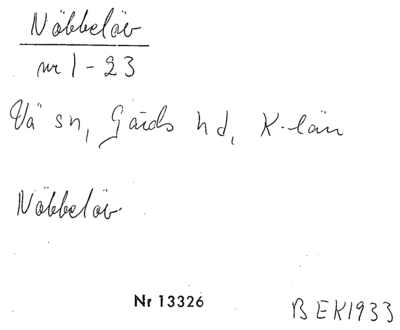 Nöbbelöv
nr 1-23
Vä sn, Gärds hd, K-län
Nöbbelöv.
Nr 13326
BEK1933